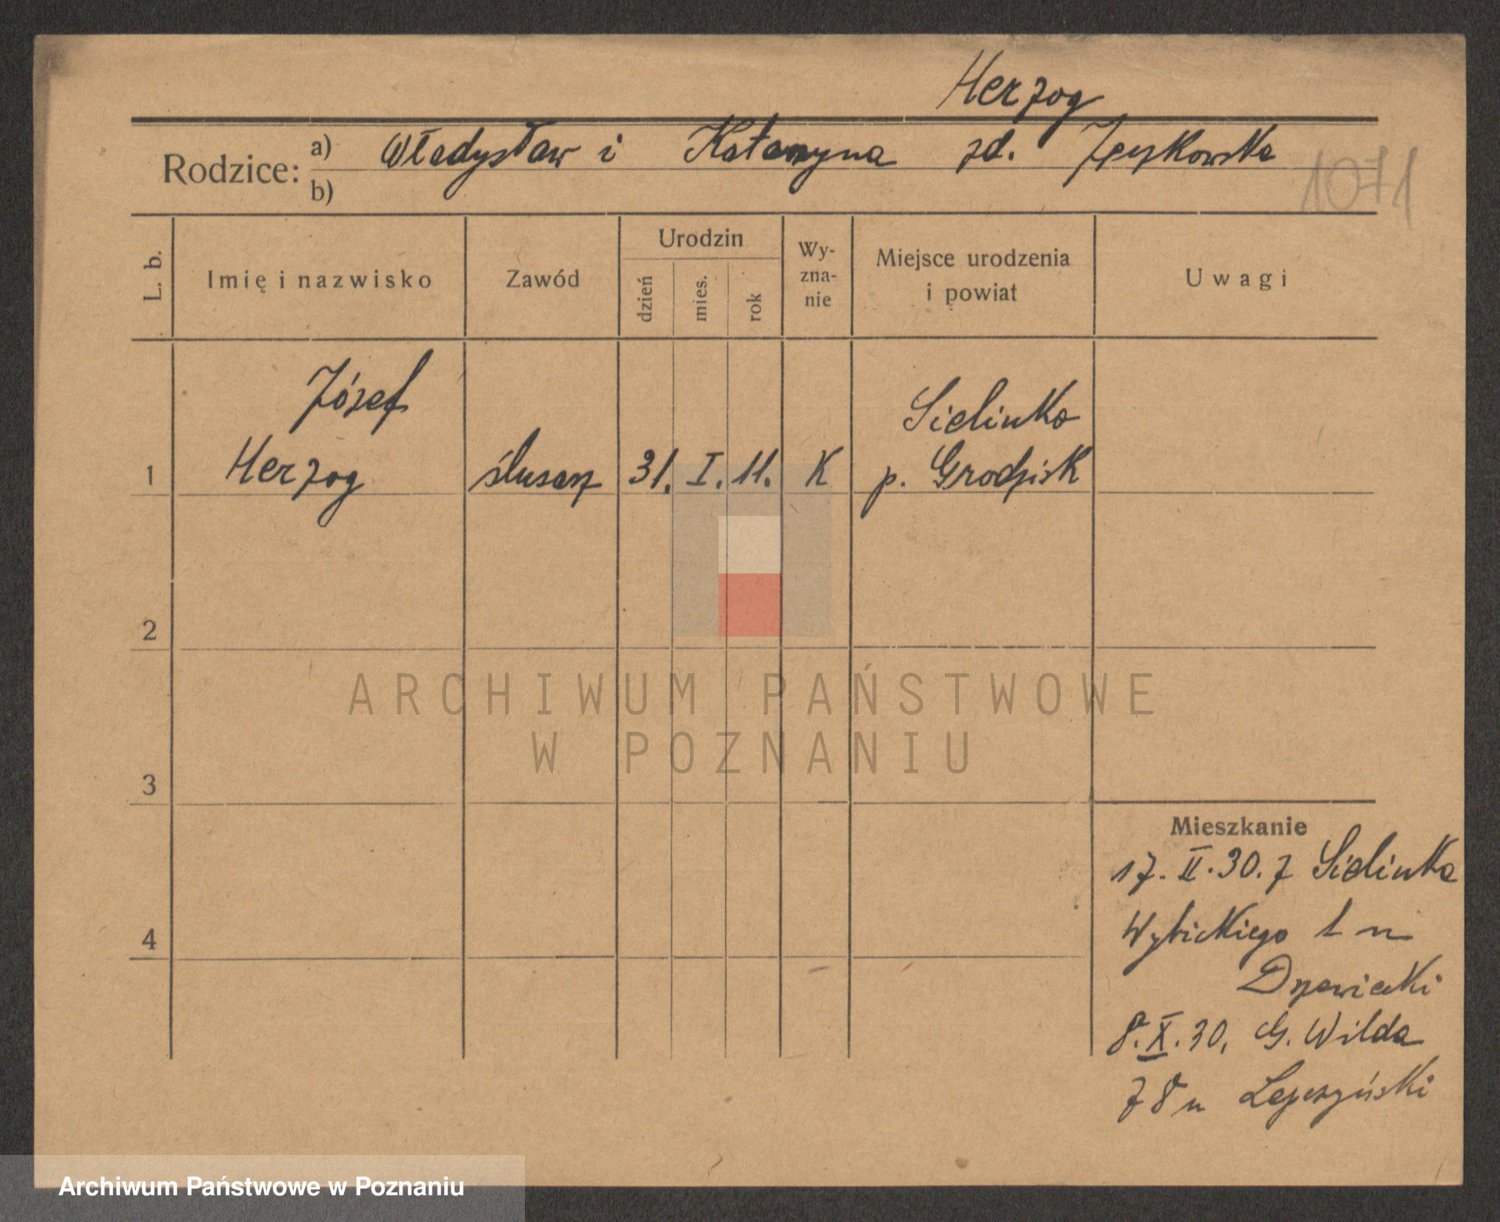 Herzog
Rodzice: a) Władysław i Katarzyna zd.
b)
1071
L. b.
Imię i nazwisko
Zawód
Urodzin
dzień
mies.
rok
Wy-
zna-
nie
Miejsce urodzenia
i powiat
Uwagi
Józef
Herzog
1
ślusarz
31. I. 11.
K
Sielinko
p. Grodzisk
2
3
4
Mieszkanie
17. II. 30. z Sielinka
Wybickiego 1 u
Drzewiecki
8. X. 30, G. Wilda
78 u Lepczyński
ARCHIWUM PAŃSTWOWE
W POZNANIU
Archiwum Państwowe w Poznaniu